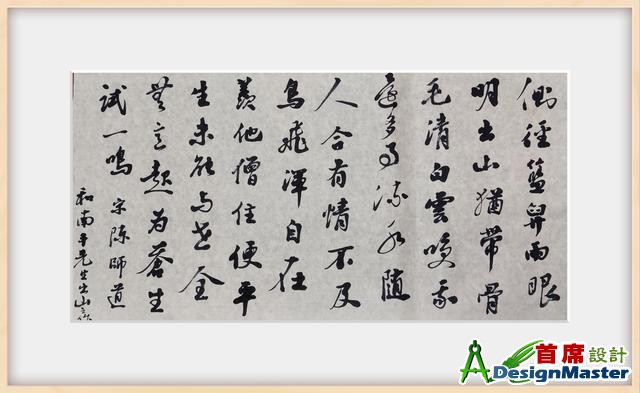 側徑籃舁兩眼
明出山猶帶骨
毛清白雲笑我
還多事流水隨
人合有情不及
鳥飛渾自在
羨他僧住便平
生未能與世全
無意起為蒼生
試一鳴 宋陳師道
和南丰先生出山之作
首席設計
DesignMaster